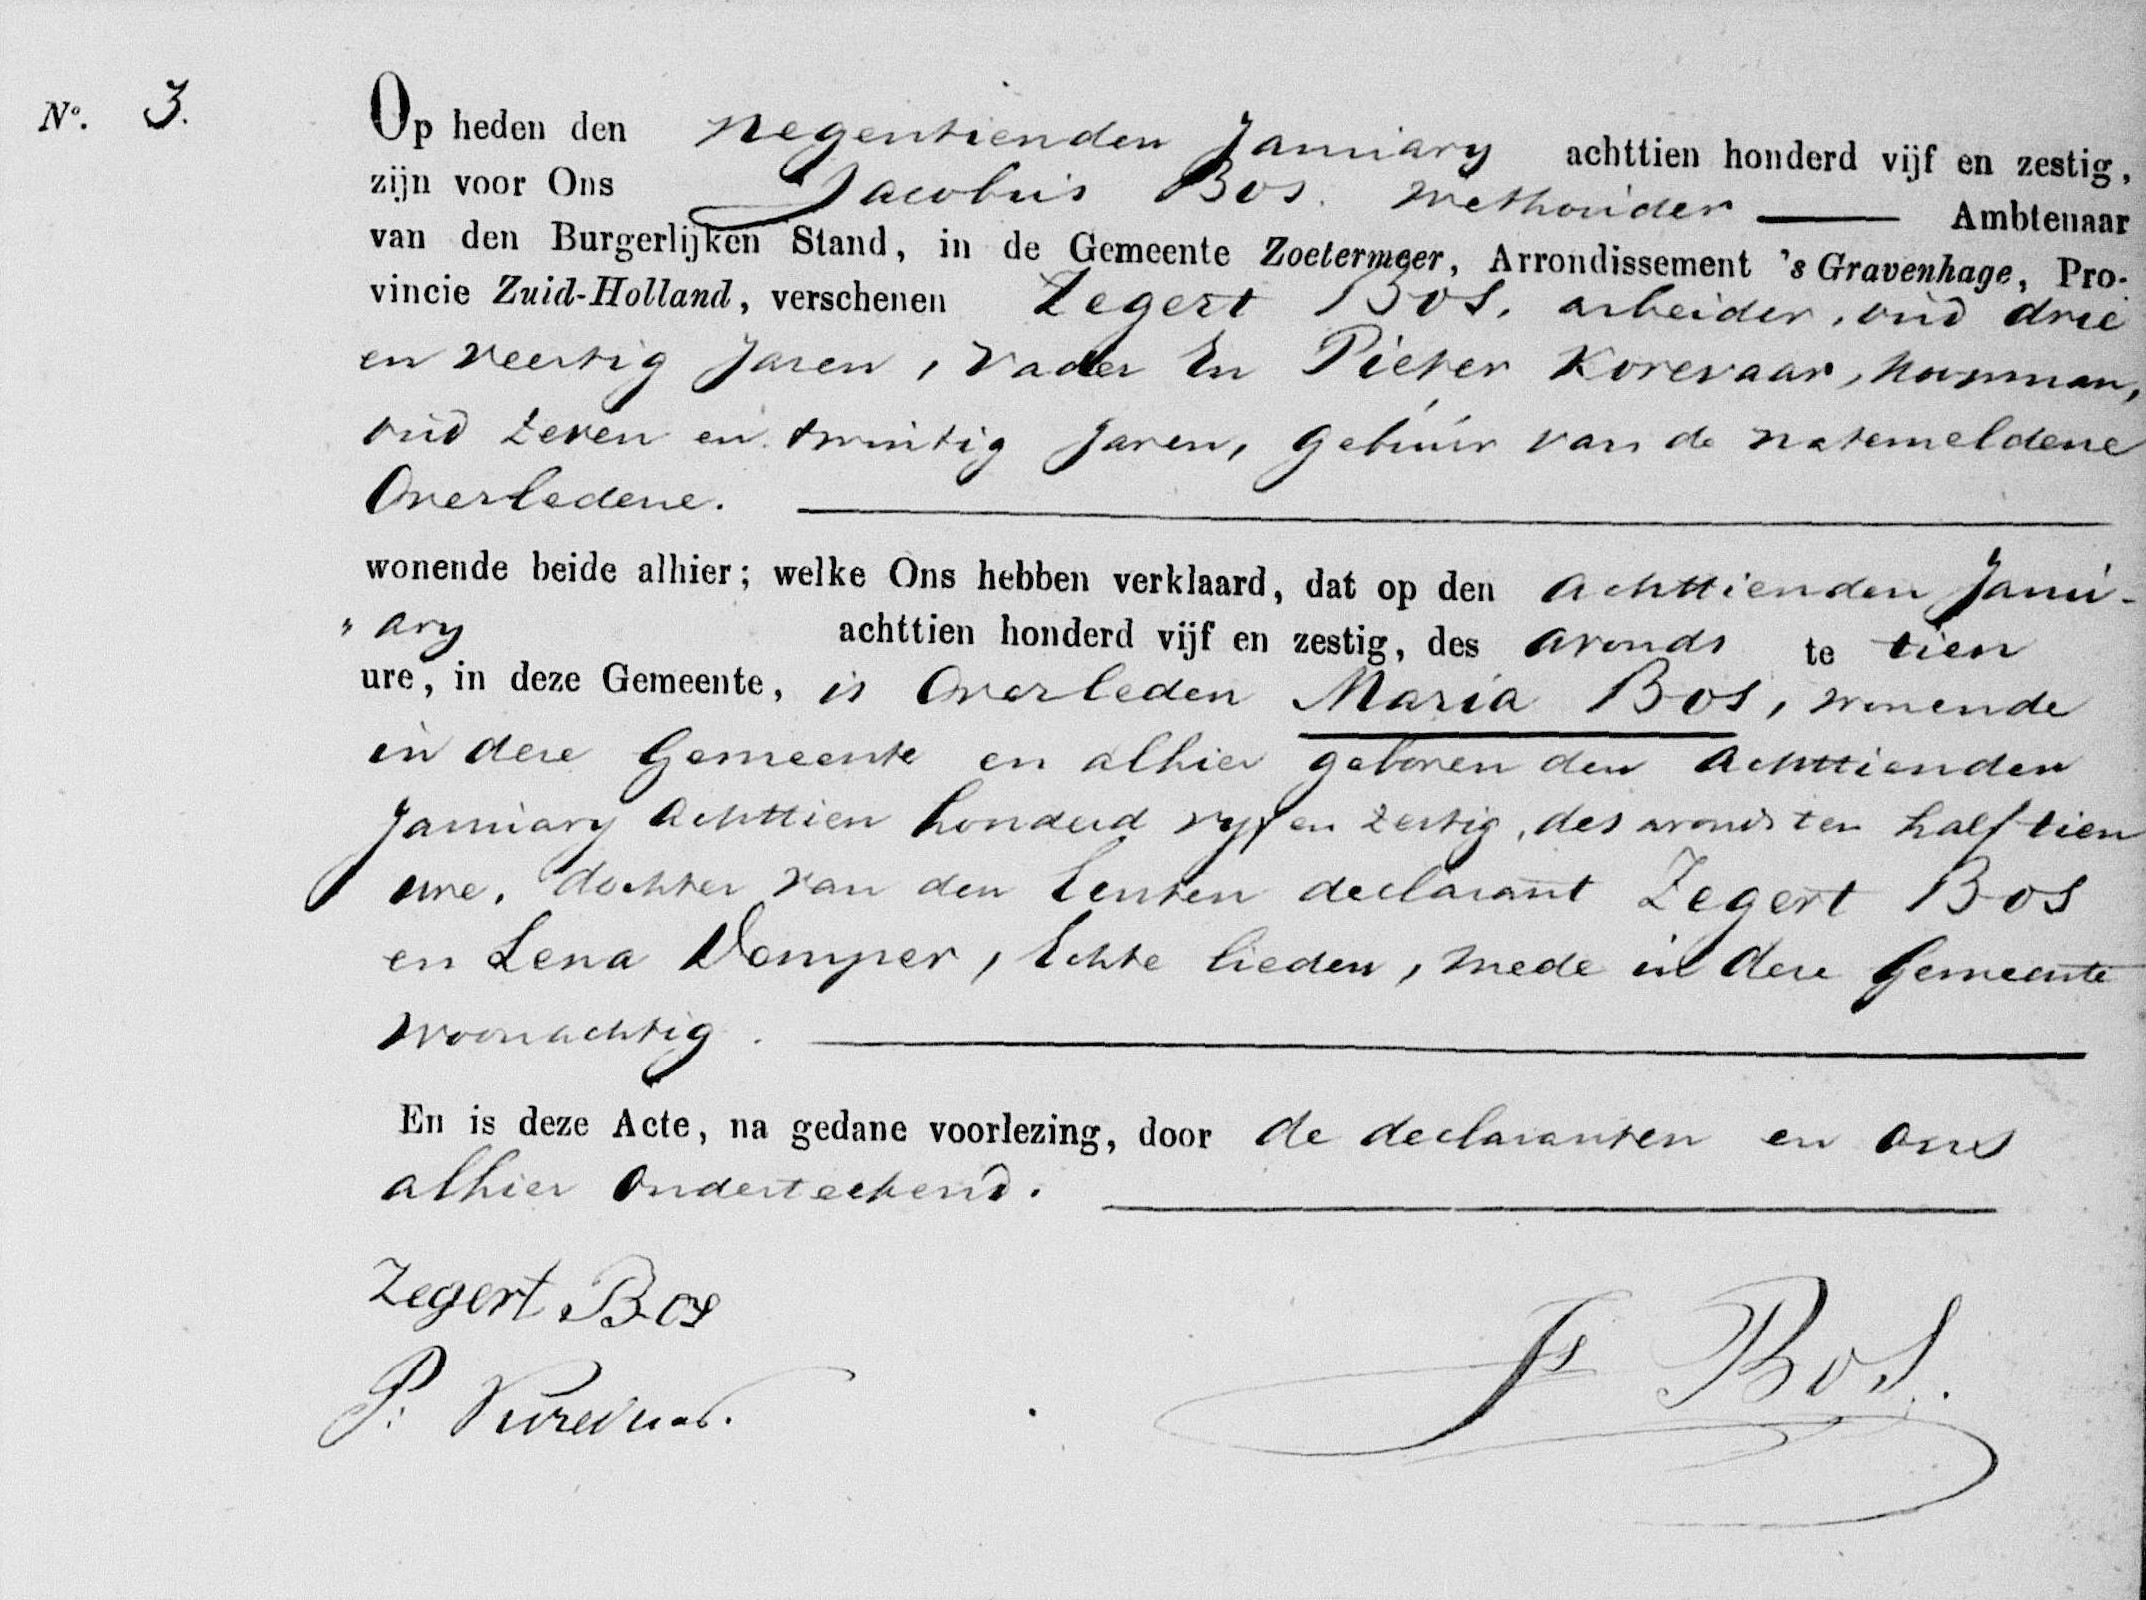 No. 3.
Op heden den negentienden January achttien honderd vijf en zestig,
zijn voor Ons Jacobus Bos. Wethouder Ambtenaar
van den Burgerlijken Stand, in de Gemeente Zoetermeer, Arrondissement 's Gravenhage, Pro-
vincie Zuid-Holland, verschenen Zegert Bos, arbeider, oud drie
en veertig Jaren, Vader En Pieter Korevaar, bouwman,
oud zeven en twintig Jaren, gebuur van de natemeldene
Overledene.
wonende beide alhier; welke Ons hebben verklaard, dat op den achttienden Janu-
" ary achttien honderd vijf en zestig, des avonds te tien
ure, in deze Gemeente, is Overleden Maria Bos, wonende
in deze Gemeente en alhier geboren den achttienden
January achttien honderd vyf en zestig, des avonds ten half tien
ure, dochter van den Eersten declarant Zegert Bos
en Lena Demper, Echte lieden, mede in deze Gemeente
woonachtig.
En is deze Acte, na gedane voorlezing, door de declaranten en ons
alhier onderteekend.
Zegert Bos
P. Korevaar.
Js Bos.